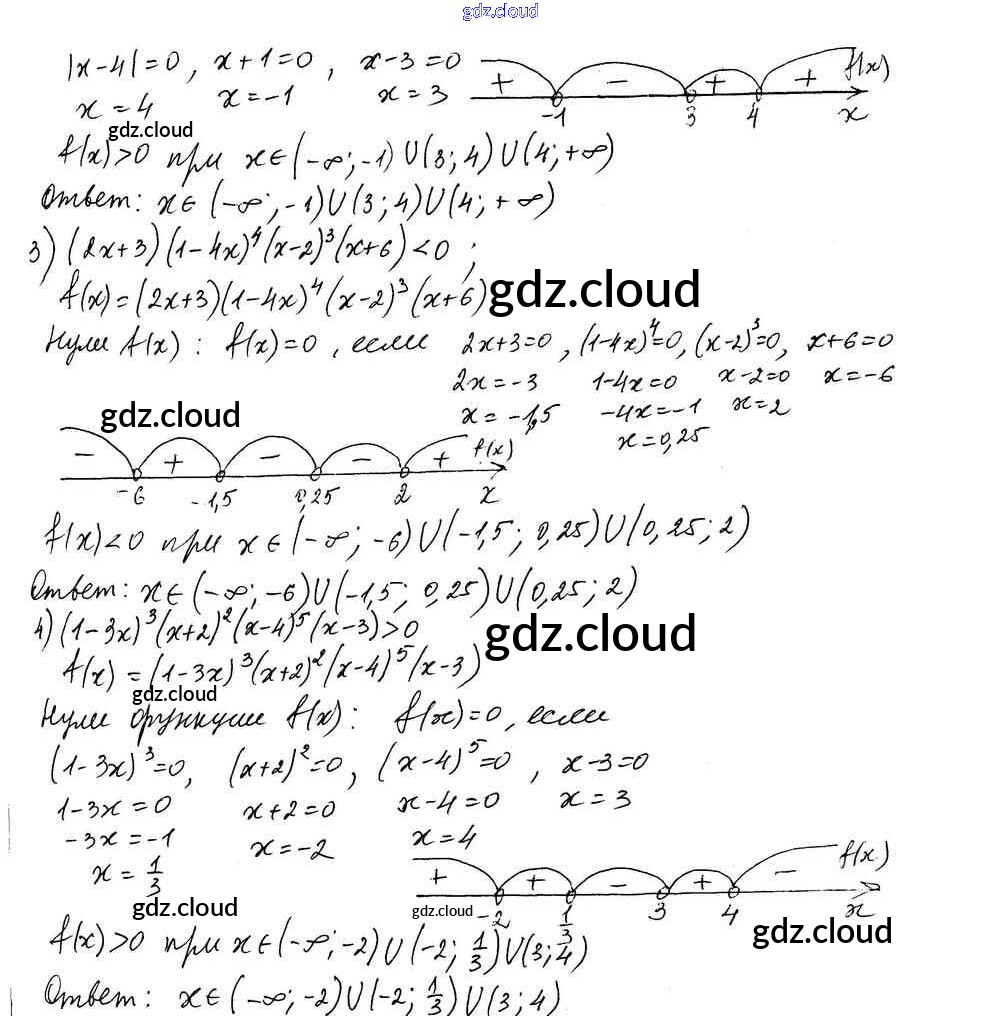 gdz.cloud
|x-4|=0, x+1=0, x-3=0
x=4 x=-1 x=3
+ - + + f(x)
-1 3 4 x
gdz.cloud
f(x)>0 при x∈(-∞; -1)∪(3; 4)∪(4; +∞)
Ответ: x∈(-∞; -1)∪(3; 4)∪(4; +∞)
3) (2x+3)(1-4x)⁴(x-2)³(x+6)<0;
f(x)=(2x+3)(1-4x)⁴(x-2)³(x+6) gdz.cloud
Нули f(x): f(x)=0, если 2x+3=0, (1-4x)⁴=0, (x-2)³=0, x+6=0
2x=-3 1-4x=0 x-2=0 x=-6
gdz.cloud x=-1,5 -4x=-1 x=2
x=0,25
- + - - + f(x)
-6 -1,5 0,25 2 x
f(x)<0 при x∈(-∞; -6)∪(-1,5; 0,25)∪(0,25; 2)
Ответ: x∈(-∞; -6)∪(-1,5; 0,25)∪(0,25; 2)
4) (1-3x)³(x+2)²(x-4)⁵(x-3)>0 gdz.cloud
f(x)=(1-3x)³(x+2)²(x-4)⁵(x-3)
gdz.cloud
Нули функции f(x): f(x)=0, если
(1-3x)³=0, (x+2)²=0, (x-4)⁵=0, x-3=0
1-3x=0 x+2=0 x-4=0 x=3
-3x=-1 x=-2 x=4
x=1/3
+ + - + - f(x)
-2 1/3 3 4 x
gdz.cloud gdz.cloud gdz.cloud
f(x)>0 при x∈(-∞; -2)∪(-2; 1/3)∪(3; 4)
Ответ: x∈(-∞; -2)∪(-2; 1/3)∪(3; 4)